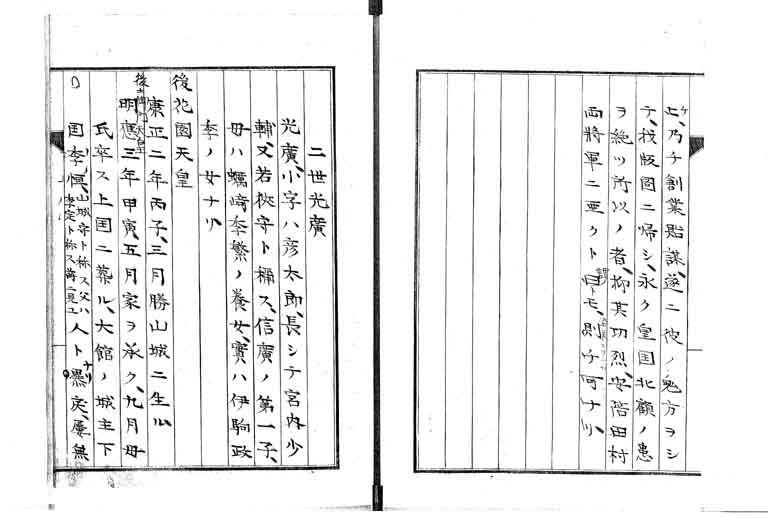 上、乃チ創業貽謀、遂ニ彼ノ鬼方ヲシ
テ、我版図ニ帰シ、永ク皇国北顧ノ患
ヲ絶ツ所以ノ者、抑其功烈、安陪田村
両将軍ニ亜クト曰トモ、則チ可ナリ、
二世光廣
光廣、小字ハ彦太郎、長シテ宮内少
輔、又若狭守ト称ス、信廣ノ第一子、
母ハ蠣崎季繁ノ養女、實ハ伊駒政
季ノ女ナリ
後花園天皇
康正二年丙子、三月勝山城ニ生ル
後土御門天皇
明應三年甲寅、五月家ヲ承ク、九月母
氏卒ス上国ニ葬ル、大館ノ城主下
国季 山城守ト称ス父ハ
季定ト称ス 人ト ナリ 暴戻、屢無